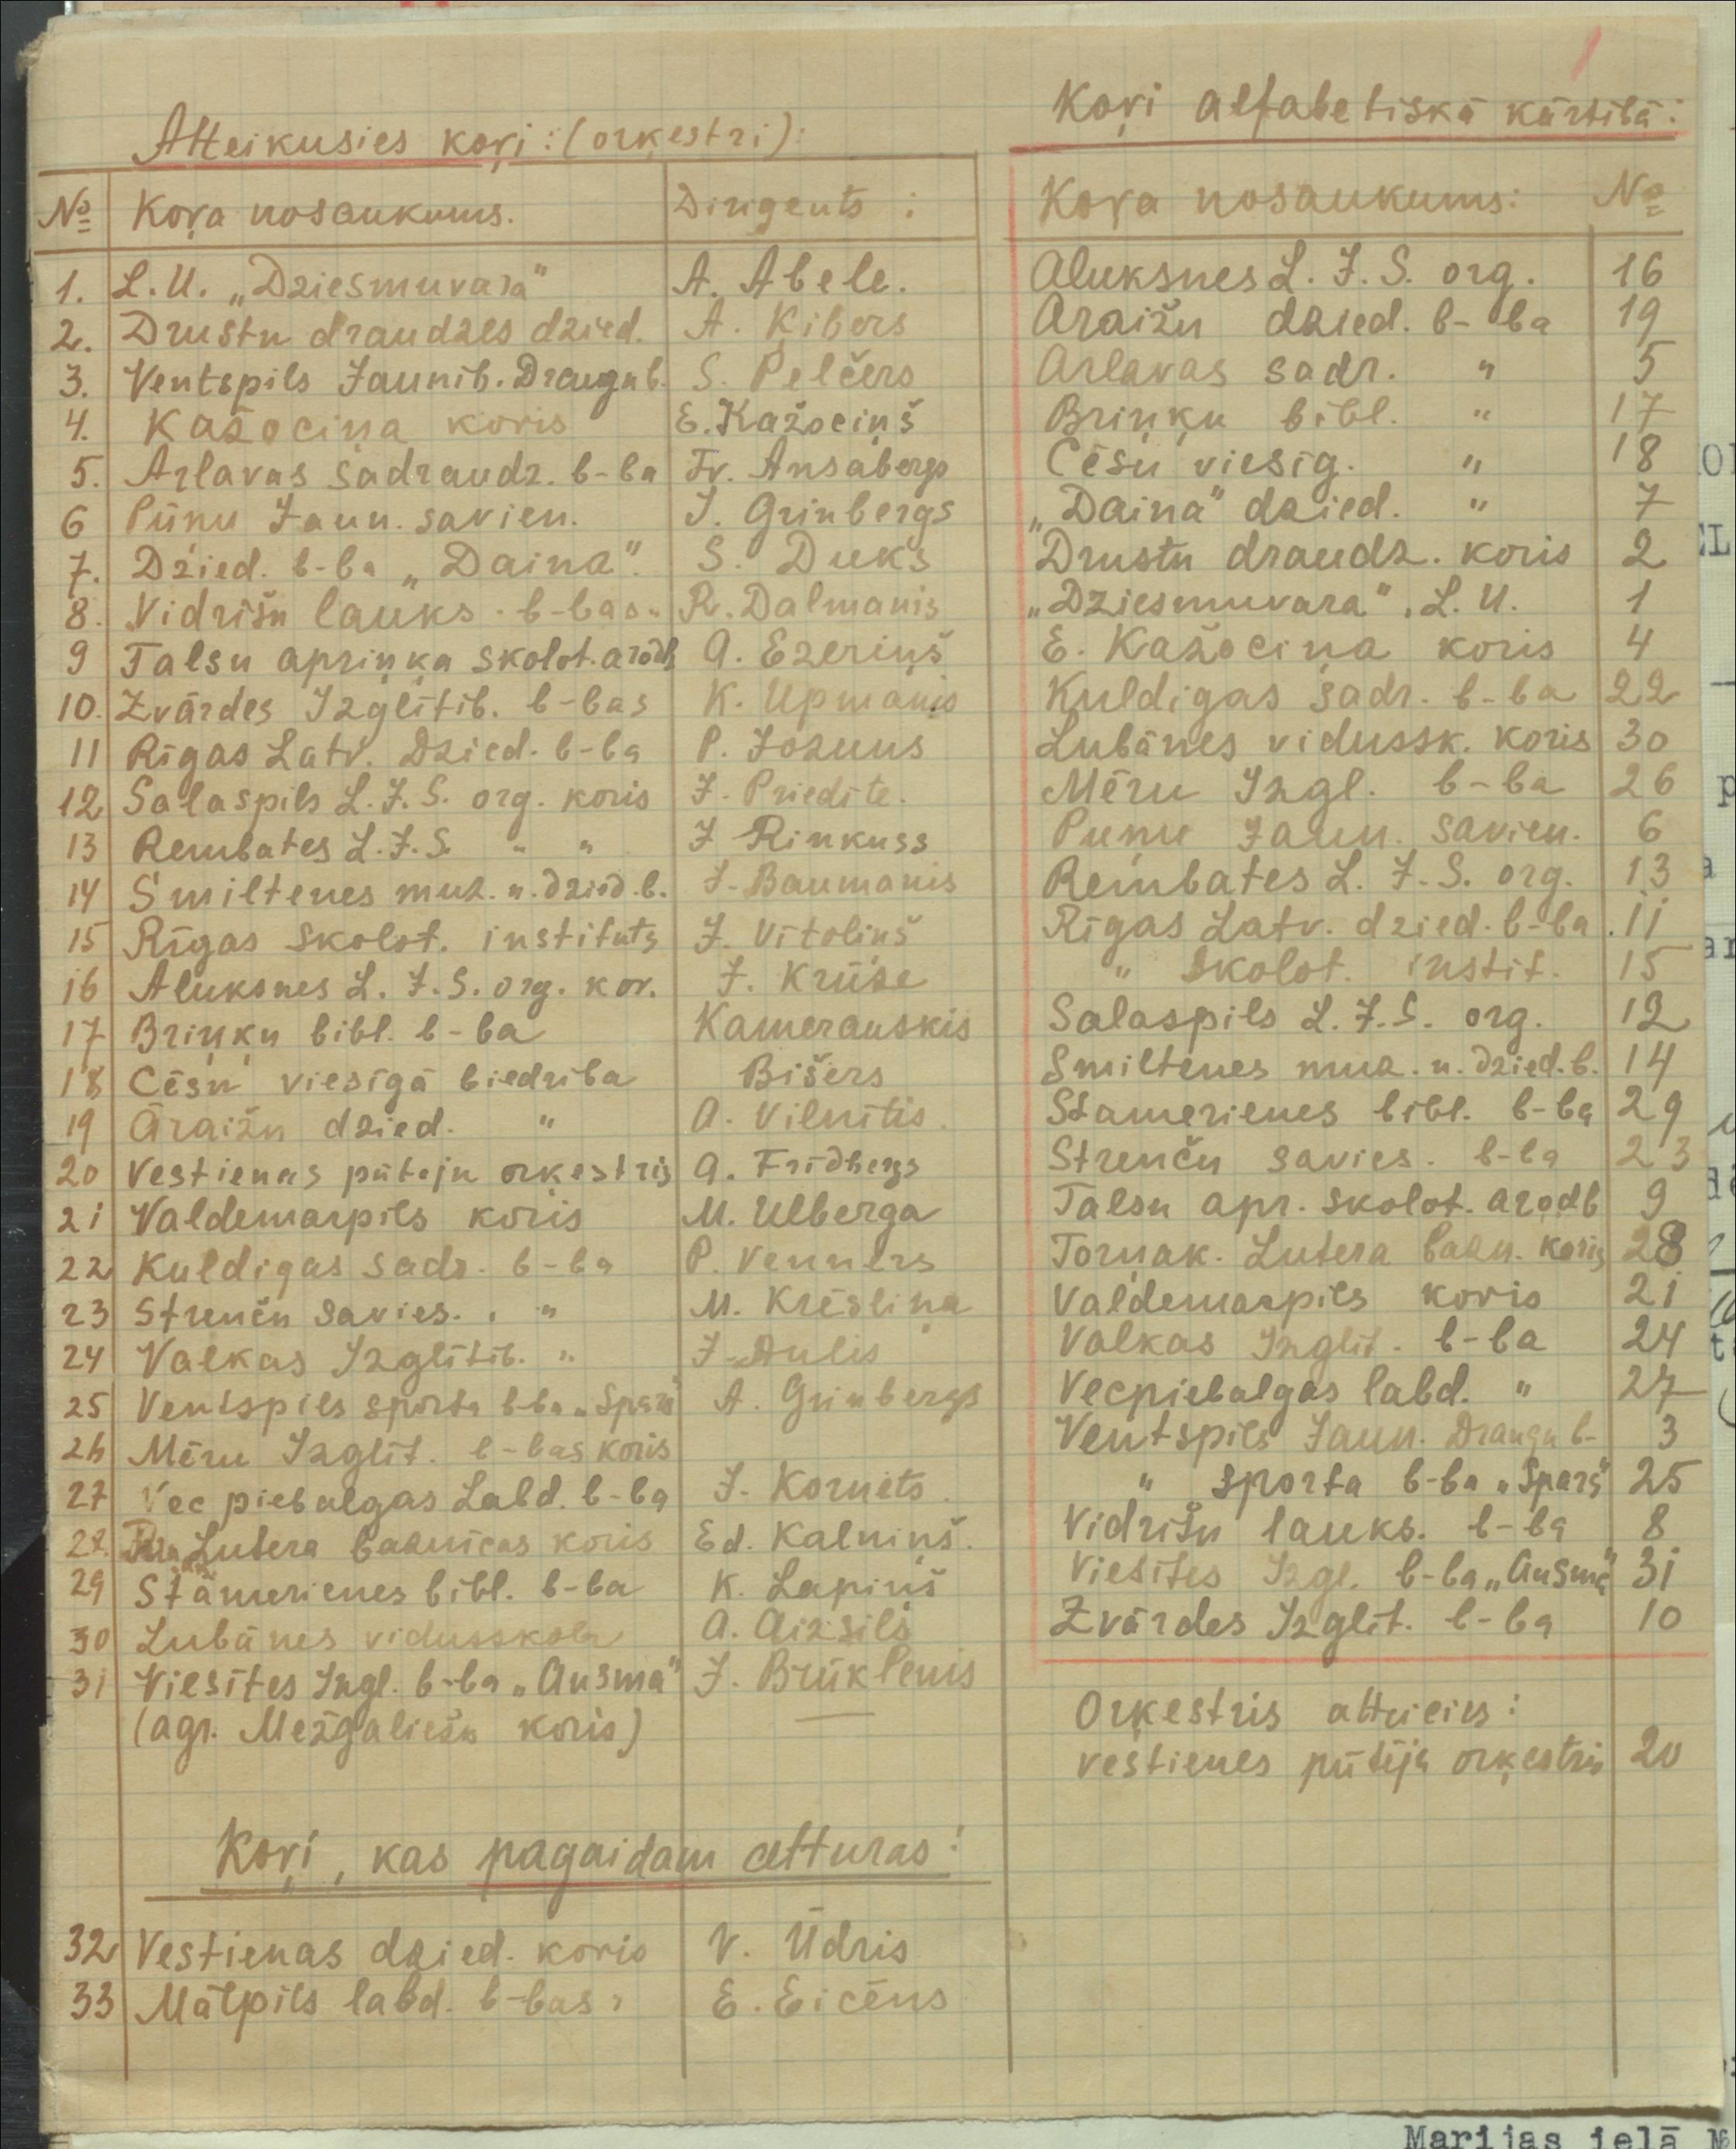 Atteikusies koŗi: (orķestri):
№ Koŗa nosaukums. Dirigents:
1. L.U. „Dziesmuvara" A. Abele.
2. Drustu draudzes dzied. A. Ķibers
3. Ventspils Jaunib. Draugu b. S. Pelčers
4. Kažociņa koris E. Kažociņš
5. Arlavas sadraudz. b-ba Fr. Ansabergs
6 Pūņu Jaun. savien. J. Grinbergs
7. Dzied. b-ba „Daina". S. Duks
8. Vidrižu lauks. b-bas „ R. Dalmanis
9 Talsu apriņķa skolot. arodb A. Ezeriņš
10. Zvārdes Izglītib. b-bas K. Upmanis
11 Rīgas Latv. Dzied. b-ba P. Jozuus
12 Salaspils L.J.S. org. koris J. Priedite.
13 Rembates L.J.S. " " J Rinkuss
14 Smiltenes muz. u. dzied. b. J. Baumanis
15 Rīgas skolot. instituts J. Vītoliņš
16 Aluksnes L.J.S. org. kor. J. Krūze
17 Briņķu bibl. b-ba Kamerauskis
18 Cēsu viesīgā biedriba Bišers
19 Āraižu dzied. " A. Vilnītis.
20 Vestienas pūteju orķestris A. Frīdbergs
21 Valdemarpils koris M. Ulberga
22 Kuldigas sadr. b-ba P. Venners
23 Strenču savies. " M. Krēsliņa
24 Valkas Izglītib. " J. Dulis
25 Ventspils sporta b-ba „Spars" A. Grinbergs
26 Mēru Izglīt. b-bas koris
27 Vecpiebalgas Labd. b-ba J. Kornets.
28. Lutera baznīcas koris Ed. Kalniņš.
29 Stāmerienes bibl. b-ba K. Lapiņš
30 Lubānes vidusskola A. Aizsils
31 Viesītes Izgl. b-ba „Ausma" J. Brūklenis
(agr. Mežgaliešu koris) —
Koŗi, kas pagaidam atturas:
32 Vestienas dzied. koris V. Ūdris
33 Mālpils labd. b-bas " E. Eicēns
Koŗi alfabetiskā kārtibā:
Koŗa nosaukums: №
Aluksnes L.J.S. org. 16
Araižu dzied. b-ba 19
Arlavas sadr. " 5
Briņķu bibl. " 17
Cēsu viesig. " 18
„Daina" dzied. " 7
Drustu draudz. koris 2
„Dziesmuvara", L.U. 1
E. Kažociņa koris 4
Kuldigas sadr. b-ba 22
Lubānes vidussk. koris 30
Mēru Izgl. b-ba 26
Puņu Jaun. savien. 6
Rembates L.J.S. org. 13
Rīgas Latv. dzied. b-ba 11
" skolot. instit. 15
Salaspils L.J.S. org. 12
Smiltenes muz. u. dzied. b. 14
Stamerienes bibl. b-ba 29
Strenču savies. b-ba 23
Talsu apr. skolot. arodb 9
Torņak. Lutera bazn. koris 28
Valdemarpils koris 21
Valkas Izglit. b-ba 24
Vecpiebalgas labd. " 27
Ventspils Jaun. Draugu b- 3
" sporta b-ba „Spars" 25
Vidrižu lauks. b-ba 8
Viesites Izgl. b-ba „Ausma" 31
Zvārdes Izglīt. b-ba 10
Orķestris atteicies:
Vestienes pūtēju orķestris 20
Marijas ielā №